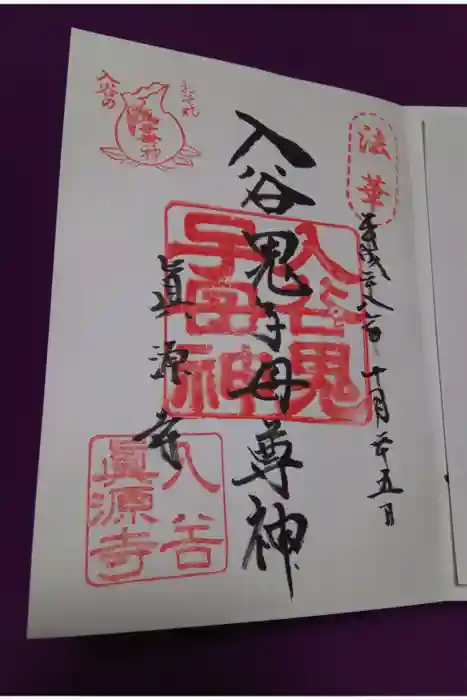 法華
平成二十八年十月二十五日
入谷鬼子母尊神
入谷鬼
子母神
眞源寺
入谷
眞源寺
入谷の